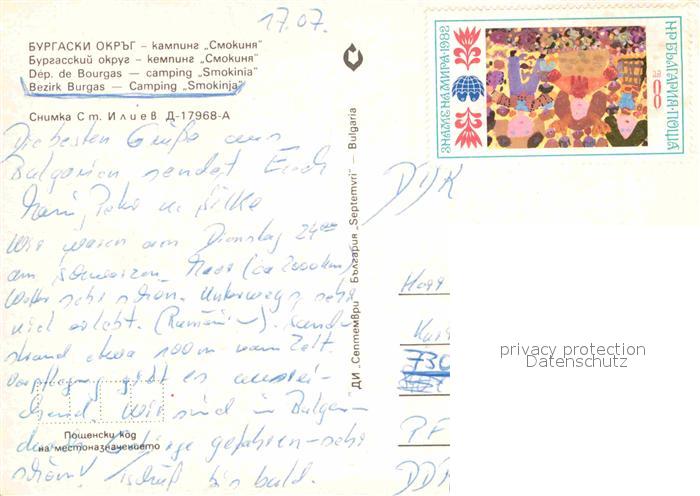 17.07.
БУРГАСКИ ОКРЪГ – кампинг „Смокиня"
Бургасский округ – кемпинг „Смокиня"
Dép. de Bourgas — camping „Smokinia"
Bezirk Burgas — Camping „Smokinja"
Снимка Ст. Илиев Д-17968-А
Die besten Grüße aus
Bulgarien sendet Euch
Peter u. Silke
Wir waren am Dienstag 24⁰⁰
am schwarzen Meer (ca 2000km)
Wetter sehr schön. Unterwegs sehr
viel erlebt. (Rumänien). Sand-
strand etwa 100m vom Zelt.
Verpflegung gibt es ausrei-
chend. Wir sind in Bulgari
durchs Gebirge gefahren – sehr
schön! Tschüß bis bald.
Пощенски код
на местоназначението
ДИ „Септември" България „Septemvri" — Bulgaria
ЗНАМЕ НА МИРА·1982
НР БЪЛГАРИЯ·ПОЩА
DJK
730
PF
DDR
privacy protection
Datenschutz